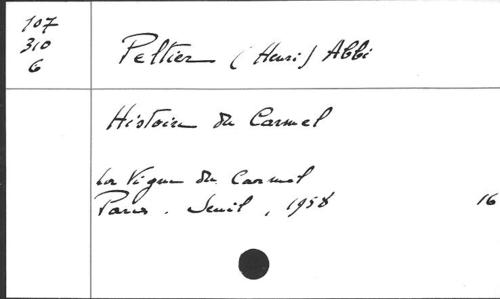 107
310
6
Peltier (Henri) Abbé
Histoire du Carmel
La Vigne du Carmel
Paris. Seuil, 1958 16